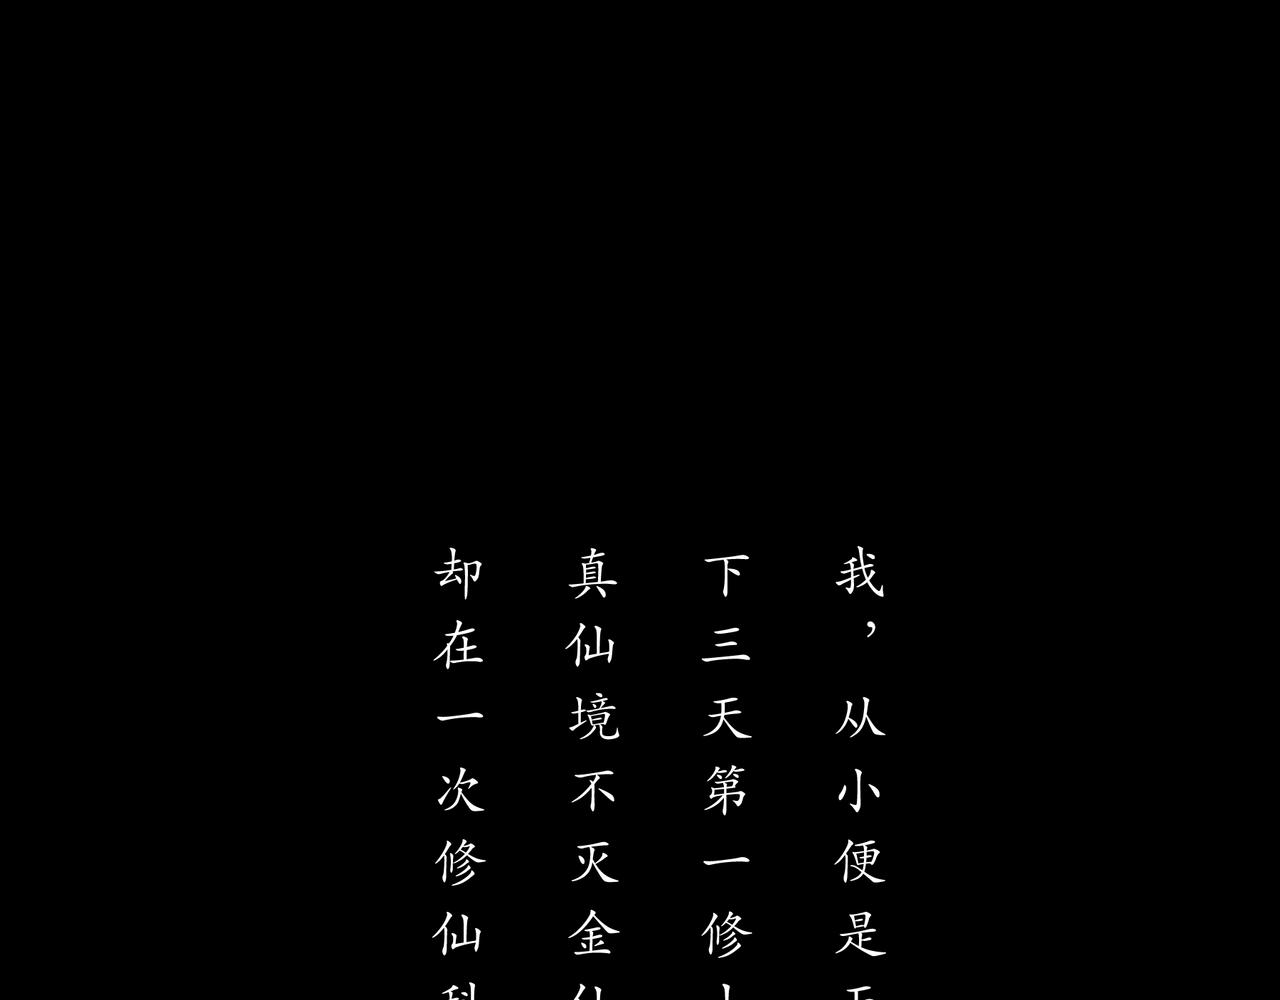 我，从小便是
下三天第一修
真仙境不灭金
却在一次修仙